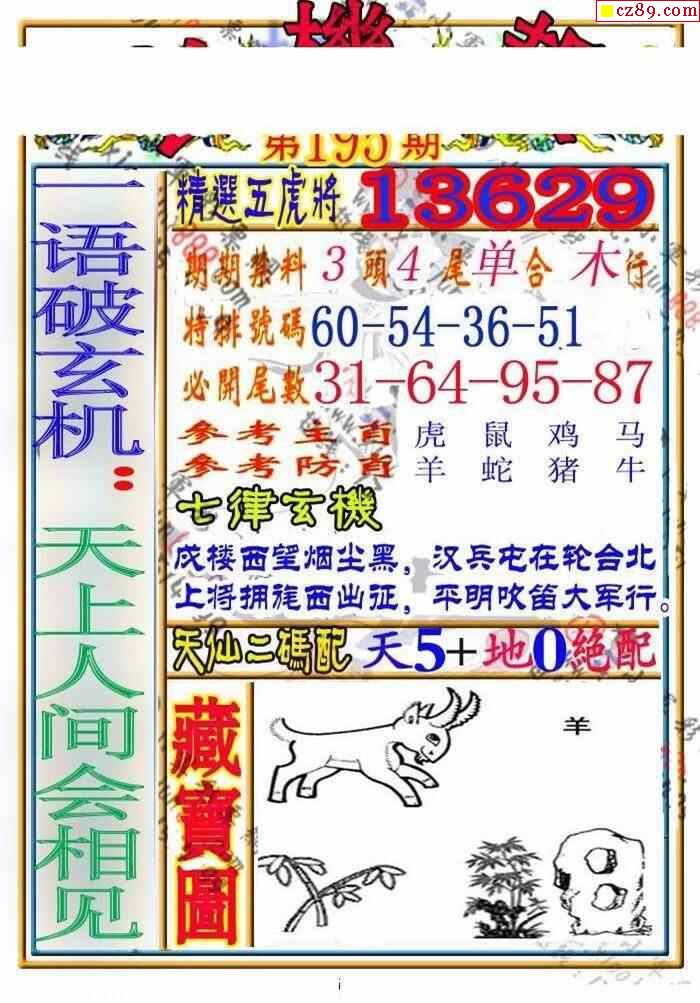 cz89.com
機
第195期
一语破玄机：天上人间会相见
精選五虎將 13629
期期禁料 3頭4尾单合 木行
特排號碼 60-54-36-51
必開尾數 31-64-95-87
參考主肖 虎 鼠 鸡 马
參考防肖 羊 蛇 猪 牛
七律玄機
戍楼西望烟尘黑，汉兵屯在轮台北
上将拥旄西出征，平明吹笛大军行。
天仙二碼配 天5+地0絕配
藏寶圖
羊
i